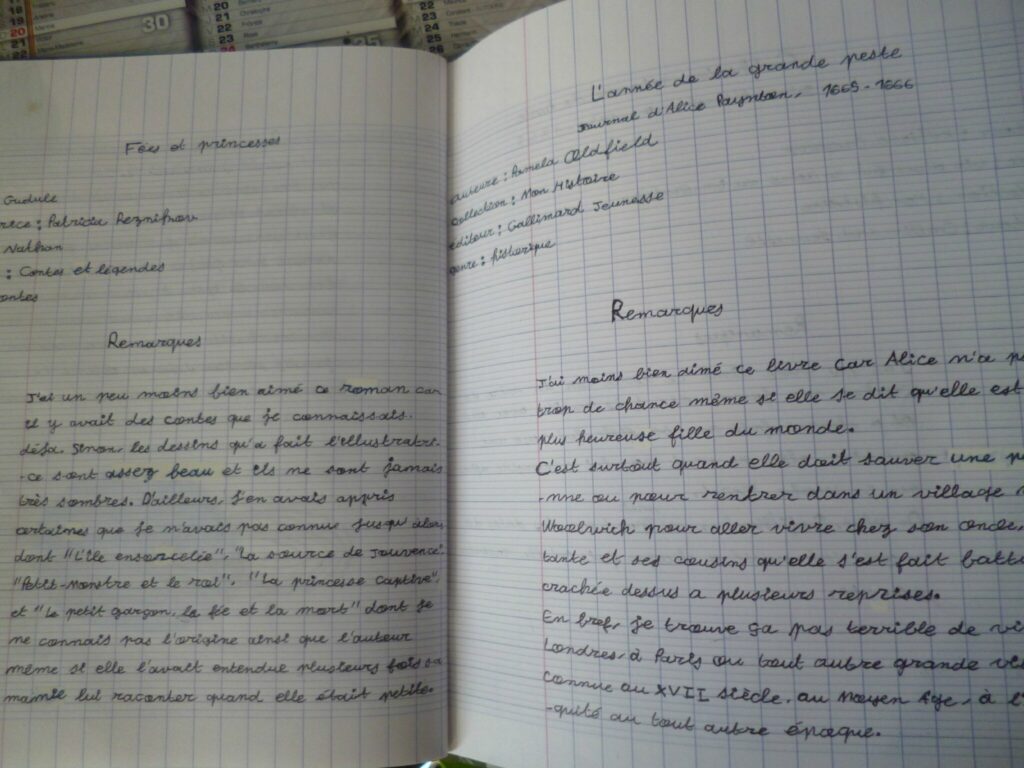 20
21
22
30
20
21
22
23
24
25
22
23
24
25
26
Fées et princesses
Gudule
rice : Patricia Reznikov
Nathan
: Contes et légendes
contes
Remarques
J'ai un peu moins bien aimé ce roman car
il y avait des contes que je connaissais
déjà. Sinon, les dessins qu'a fait l'illustratri-
-ce sont assez beau et ils ne sont jamais
très sombres. D'ailleurs, j'en avais appris
certaines que je n'avais pas connue jusqu'alors
dont "L'île ensorcelée", "La source de jouvence",
"Petit-Monstre et le roi", "La princesse captive",
et "Le petit garçon, la fée et la mort" dont je
ne connais pas l'origine ainsi que l'auteur
même si elle l'avait entendue plusieurs fois sa
mamie lui raconter quand elle était petite.
L'année de la grande peste
Journal d'Alice Paynton, 1665-1666
auteure : Pamela Oldfield
collection : Mon Histoire
éditeur : Gallimard Jeunesse
genre : historique
Remarques
J'ai moins bien aimé ce livre car Alice n'a p
trop de chance même si elle se dit qu'elle est
plus heureuse fille du monde.
C'est surtout quand elle doit sauver une p
-nne ou pour rentrer dans un village
Woolwich pour aller vivre chez son oncle,
tante et ses cousins qu'elle s'est fait batt
crachée dessus a plusieurs reprises.
En bref, je trouve ça pas terrible de vi
Londres, à Paris ou tout autre grande vi
connue au XVII siècle, au Moyen Age, à l'
-quité ou tout autre époque.